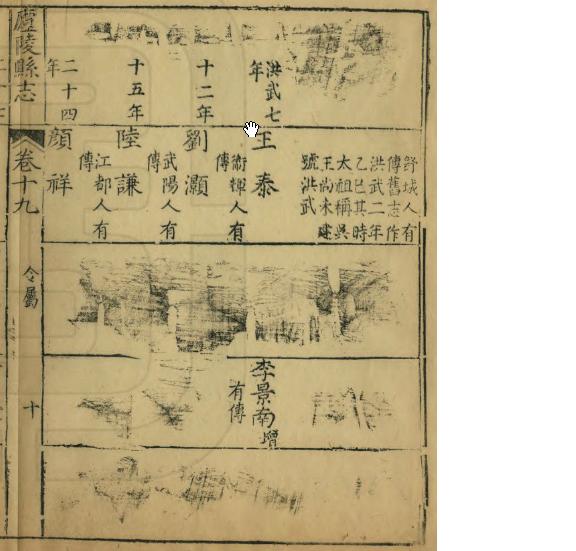 舒城人有
傳舊志作
洪武二年
乙巳其時
太祖稱吳
王尚未建
號洪武
洪武七
年
王泰
衛輝人有
傳
李景南增
有傳
十二年
劉灝
武陽人有
傳
十五年
陸謙
江都人有
傳
二十四
年
顏祥
廬陵縣志
卷十九
令屬
十